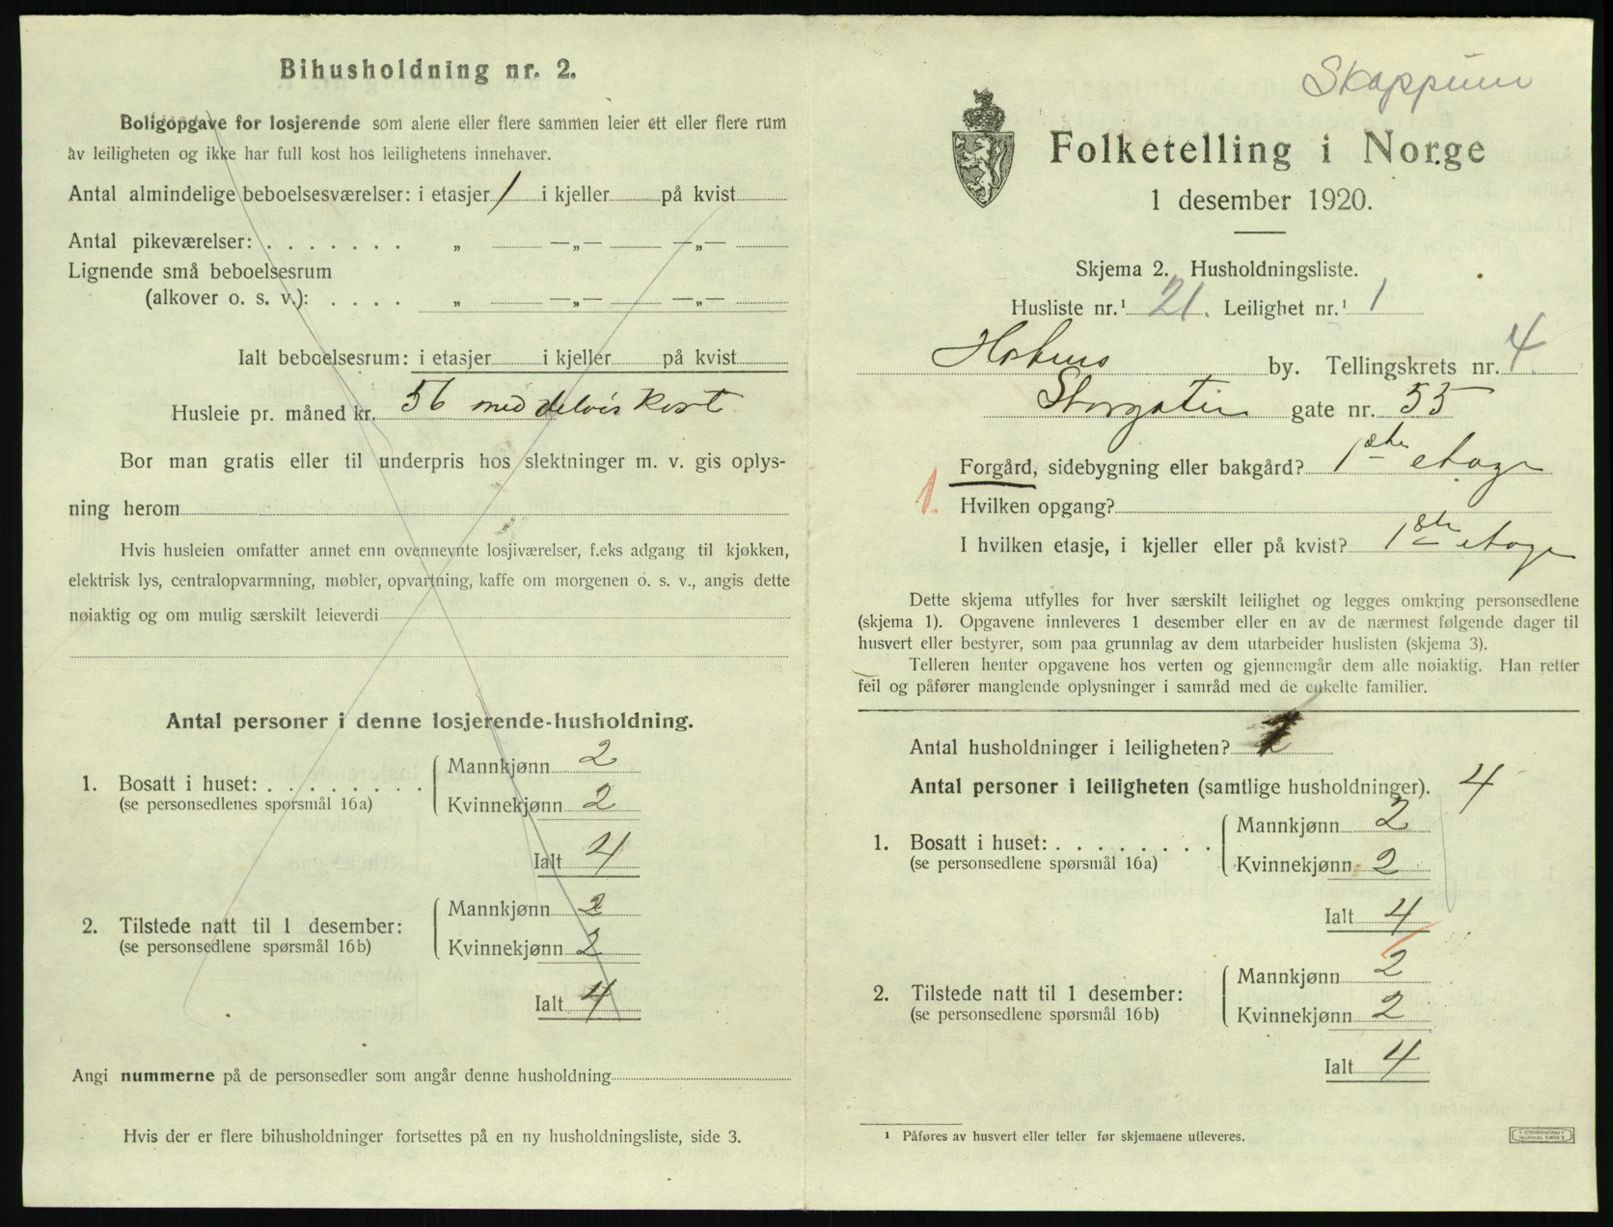 Bihusholdning nr. 2.
Boligopgave for losjerende som alene eller flere sammen leier ett eller flere rum
av leiligheten og ikke har full kost hos leilighetens innehaver.
Antal almindelige beboelsesværelser: i etasjer 1 i kjeller på kvist
Antal pikeværelser: . . . . . . . „ —„— —„—
Lignende små beboelsesrum
(alkover o. s. v.): . . . . „ —„— —„—
Ialt beboelsesrum: i etasjer i kjeller på kvist
Husleie pr. måned kr. 56 med delvis kost
Bor man gratis eller til underpris hos slektninger m. v. gis oplys-
ning herom
Hvis husleien omfatter annet enn ovennevnte losjiværelser, f.eks adgang til kjøkken,
elektrisk lys, centralopvarmning, møbler, opvartning, kaffe om morgenen o. s. v., angis dette
nøiaktig og om mulig særskilt leieverdi
Antal personer i denne losjerende-husholdning.
1. Bosatt i huset: . . . . . . . .
(se personsedlenes spørsmål 16a)
Mannkjønn 2
Kvinnekjønn 2
Ialt 4
2. Tilstede natt til 1 desember:
(se personsedlene spørsmål 16b)
Mannkjønn 2
Kvinnekjønn 2
Ialt 4
Angi nummerne på de personsedler som angår denne husholdning
Hvis der er flere bihusholdninger fortsettes på en ny husholdningsliste, side 3.
Skappum
Folketelling i Norge
1 desember 1920.
Skjema 2. Husholdningsliste.
Husliste nr.¹ 21. Leilighet nr.¹ 1
Hortens by. Tellingskrets nr. 4
Storgaten gate nr. 55
Forgård, sidebygning eller bakgård? 1ste etage
1. Hvilken opgang?
I hvilken etasje, i kjeller eller på kvist? 1ste etage
Dette skjema utfylles for hver særskilt leilighet og legges omkring personsedlene
(skjema 1). Opgavene innleveres 1 desember eller en av de nærmest følgende dager til
husvert eller bestyrer, som paa grunnlag av dem utarbeider huslisten (skjema 3).
Telleren henter opgavene hos verten og gjennemgår dem alle nøiaktig. Han retter
feil og påfører manglende oplysninger i samråd med de enkelte familier.
Antal husholdninger i leiligheten?
Antal personer i leiligheten (samtlige husholdninger). 4
1. Bosatt i huset: . . . . . . . .
(se personsedlene spørsmål 16a)
Mannkjønn 2
Kvinnekjønn 2
Ialt 4
2. Tilstede natt til 1 desember:
(se personsedlene spørsmål 16b)
Mannkjønn 2
Kvinnekjønn 2
Ialt 4
¹ Påføres av husvert eller teller før skjemaene utleveres.